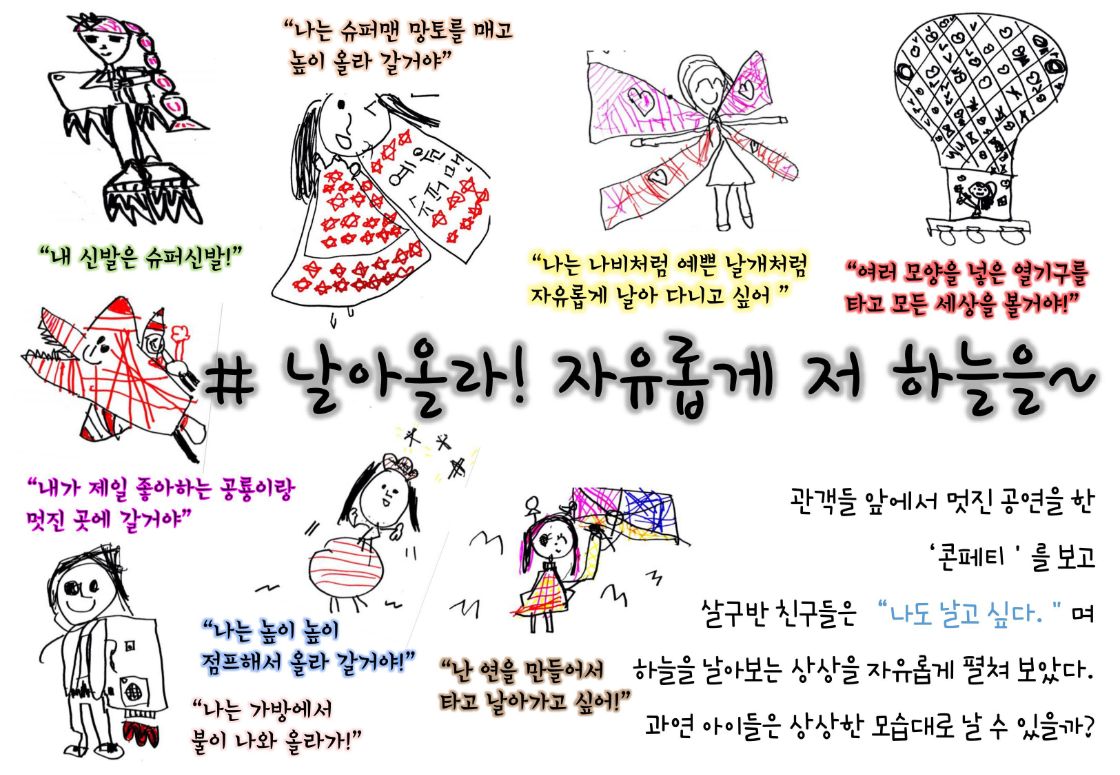 “나는 슈퍼맨 망토를 매고
높이 올라 갈거야”
슈퍼맨
“내 신발은 슈퍼신발!”
“나는 나비처럼 예쁜 날개처럼
자유롭게 날아 다니고 싶어 ”
“여러 모양을 넣은 열기구를
타고 모든 세상을 볼거야!”
# 날아올라! 자유롭게 저 하늘을~
“내가 제일 좋아하는 공룡이랑
멋진 곳에 갈거야”
“나는 높이 높이
점프해서 올라 갈거야!”
“나는 가방에서
불이 나와 올라가!”
“난 연을 만들어서
타고 날아가고 싶어!”
관객들 앞에서 멋진 공연을 한
‘콘페티 ' 를 보고
살구반 친구들은 “나도 날고 싶다. " 며
하늘을 날아보는 상상을 자유롭게 펼쳐 보았다.
과연 아이들은 상상한 모습대로 날 수 있을까?